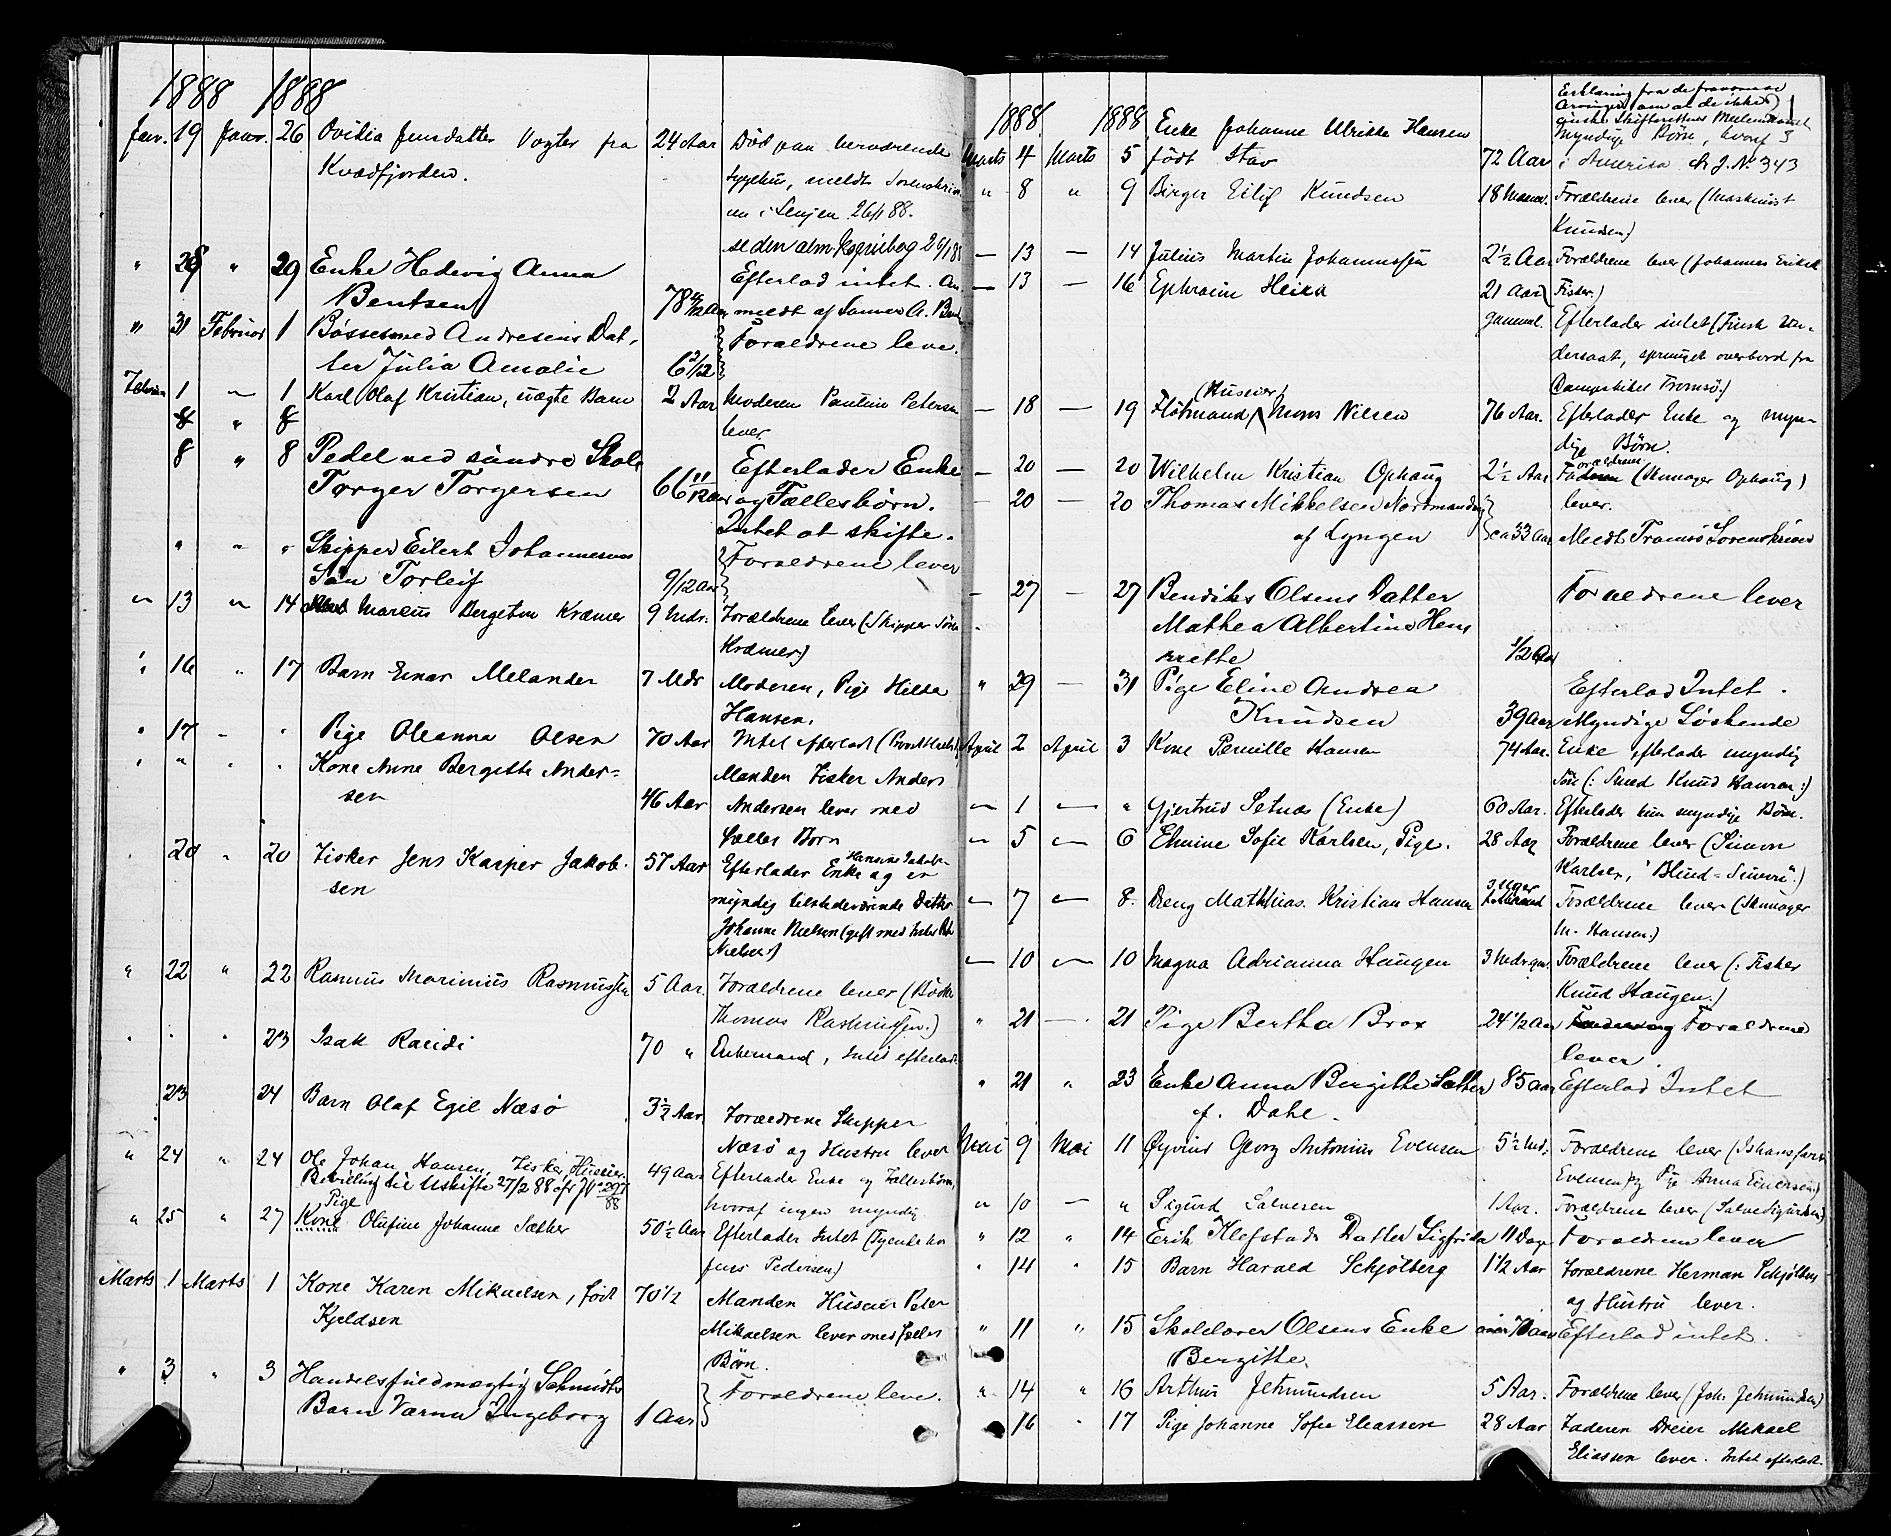 1888 1888
Janr. 19 Janr. 26 Ovidia Jensdatter Vogter fra 24 Aar Død paa herværende
Kvædfjorden. Sygehus, meldt Sorenskrive
ren i Senjen 26/1 88.
se den alm. Kopiebog 26/1 88
" 28 " 29 Enke Hedevig Anna Efterlod intet. An
Bentsen 78 Aar meldt af Sønnen A. Bent
" 31 Februar 1 Bøssesmed Andresens Dat, Forældrene leve.
ter Julia Amalie 6 2/12
Februar 1 — 1 Karl Olaf Kristian, uægte Barn 2 Aar Moderen Pauline Petersen
lever
8 " 8 Pedel ved søndre Skole Efterlader Enke
Torger Torgersen 66 11/12 Aar og Fællesbørn.
Intet at skifte.
" " " Skipper Eilert Johannesens Forældrene lever
Søn Torleif 9/12 Aar
" 13 " 14 Marcus Bergeton Kræmer 9 Mdr. Forældrene lever (Skipper Søren
Kræmer)
" 16 " 17 Barn Einar Melander 7 Mdr Moderen, Pige Hilda
Hansen.
" 17 — " Pige Oleanna Olsen 70 Aar Intet efterladt
" " " " Kone Anne Bergitte Ander= Manden Fisker Anders
sen 46 Aar Andersen lever med
fælles Børn
" 20 " 20 Fisker Jens Kasper Jakob- 57 Aar Efterlader Enke Hansine Jakobs og en
sen myndig tilstedeværende Datter
Johanne Nielsen (gift med
Nielsen)
" 22 " 22 Rasmus Marinius Rasmussen 5 Aar. Forældrene lever (Bødker
Thomas Rasmussen.)
" " " 23 Isak Raudi 70 " Enkemand, Intet efterladt
23 24 Barn Olaf Egil Næsø 3½ Aar Forældrene Skipper
Næsø og Hustru lever
" 24 " 24 Ole Johan Hansen, Fisker, Huseier 49 Aar Efterlader Enke og Fællesbørn,
Bevilling til Uskifte 27/2 88 cfr J№ 297/88 hvoraf ingen myndig
" 25 " 27 Pige Kone Olufine Johanne Sæther 50½ Aar Efterlader Intet (Tjente hos
Jens Pedersen)
Marts 1 Marts 1 Kone Karen Mikaelsen, født 70½ Manden Husеier Peter
Kjeldsen Mikaelsen lever med fælles
Børn.
" 3 " 3 Handelsfuldmægtig Schmidts Forældrene leve.
Barn Varna Ingeborg 1 Aar
1888. 1888
Erklæring fra de fraværende
Arvinger om at de ikke
ønske Skifterettens Mellemkomst
Marts 4 Marts 5 Enke Johanne Ulrikke Hansen Myndige Børn, hvoraf 3
født Stav 72 Aar i Amerika cfr J. № 343
" 8 " 9 Birger Eilif Knudsen 18 Maan. Forældrene lever (Maskinist
Knudsen)
— 13 — 14 Julius Martin Johannessen 2½ Aar Forældrene lever (Johannes Erikse
— 13 — 16 Ephraim Heika 21 Aar Fisker.)
gammel. Efterlader intet (Finsk Un-
dersaat, sprunget overbord fra
Dampskibet Tromsø.)
— 18 — 19 Fløtmand (Husеier) Mons Nilsen 76 Aar. Efterlader Enke og myn-
dige Børn.
— 20 — 20 Wilhelm Kristian Ophaug 2½ Aar Forældrene (Skmager Ophaug)
lever.
— 20 20 Thomas Mikkelsen Nordmandvig
af Lyngen ca 33 Aar Meldt Tromsø Sorenskriver
— 27 — 27 Bendiks Olsens Datter Forældrene lever
Mathea Albertine Hen
riette 1/2 Aar
" 29 — 31 Pige Eline Andrea Efterlod Intet.
Knudsen 39 Aar Myndige Søskende
April 2 April 3 Kone Pernille Hansen 74 Aar. Enke efterlader myndig
Søn (: Smed Knud Hansen:)
— 1 — " Gjertrud Setnæs (Enke) 60 Aar. Efterlader kun myndige Børn.
— 5 — 6 Elmine Sofie Karlsen, Pige. 28 Aar Forældrene lever (Simon
Karlsen, "Blind=Simon".)
— 7 — 8. Dreng Mathias Kristian Hansen 3 Uger Forældrene lever (Skmager
M. Hansen.)
— 10 — 10 Magna Adrianna Haugen 3 Mdr. gm. Forældrene lever (: Fisker
Knud Haugen.)
" 21 — 21 Pige Bertha Brox 24 1/2 Aar Forældrene
lever
" 21 " 23 Enke Anna Birgitte Sæther 85 Aar Efterlod Intet
f. Dahl.
Mai 9 Mai 11 Øyvind Georg Antonius Evensen 5½ Md. Forældrene lever (
Evensen og Pige Anna Einersen)
" 10 — " Sigurd Salvesen 1 Aar. Forældrene lever (Salve Sigurdsen)
" 12 " 14 Erik Klefstads Datter Sigfrida 11 Dage Forældrene lever
" 14 " 15 Barn Harald Schjølberg 1 1/2 Aar Forældrene Herman Schjølberg
og Hustru lever.
" 11 " 15 Skolelærer Olsens Enke over 70 Aar Efterlod intet.
Bergitte.
" 14 " 16 Arthur Jetmundsen 5 Aar. Forældrene lever (Joh. Jetmundsen)
16 " 17 Pige Johanne Sofie Eleassen 28 Aar Faderen Dreier Mikael
Eliassen lever. Intet efterladt